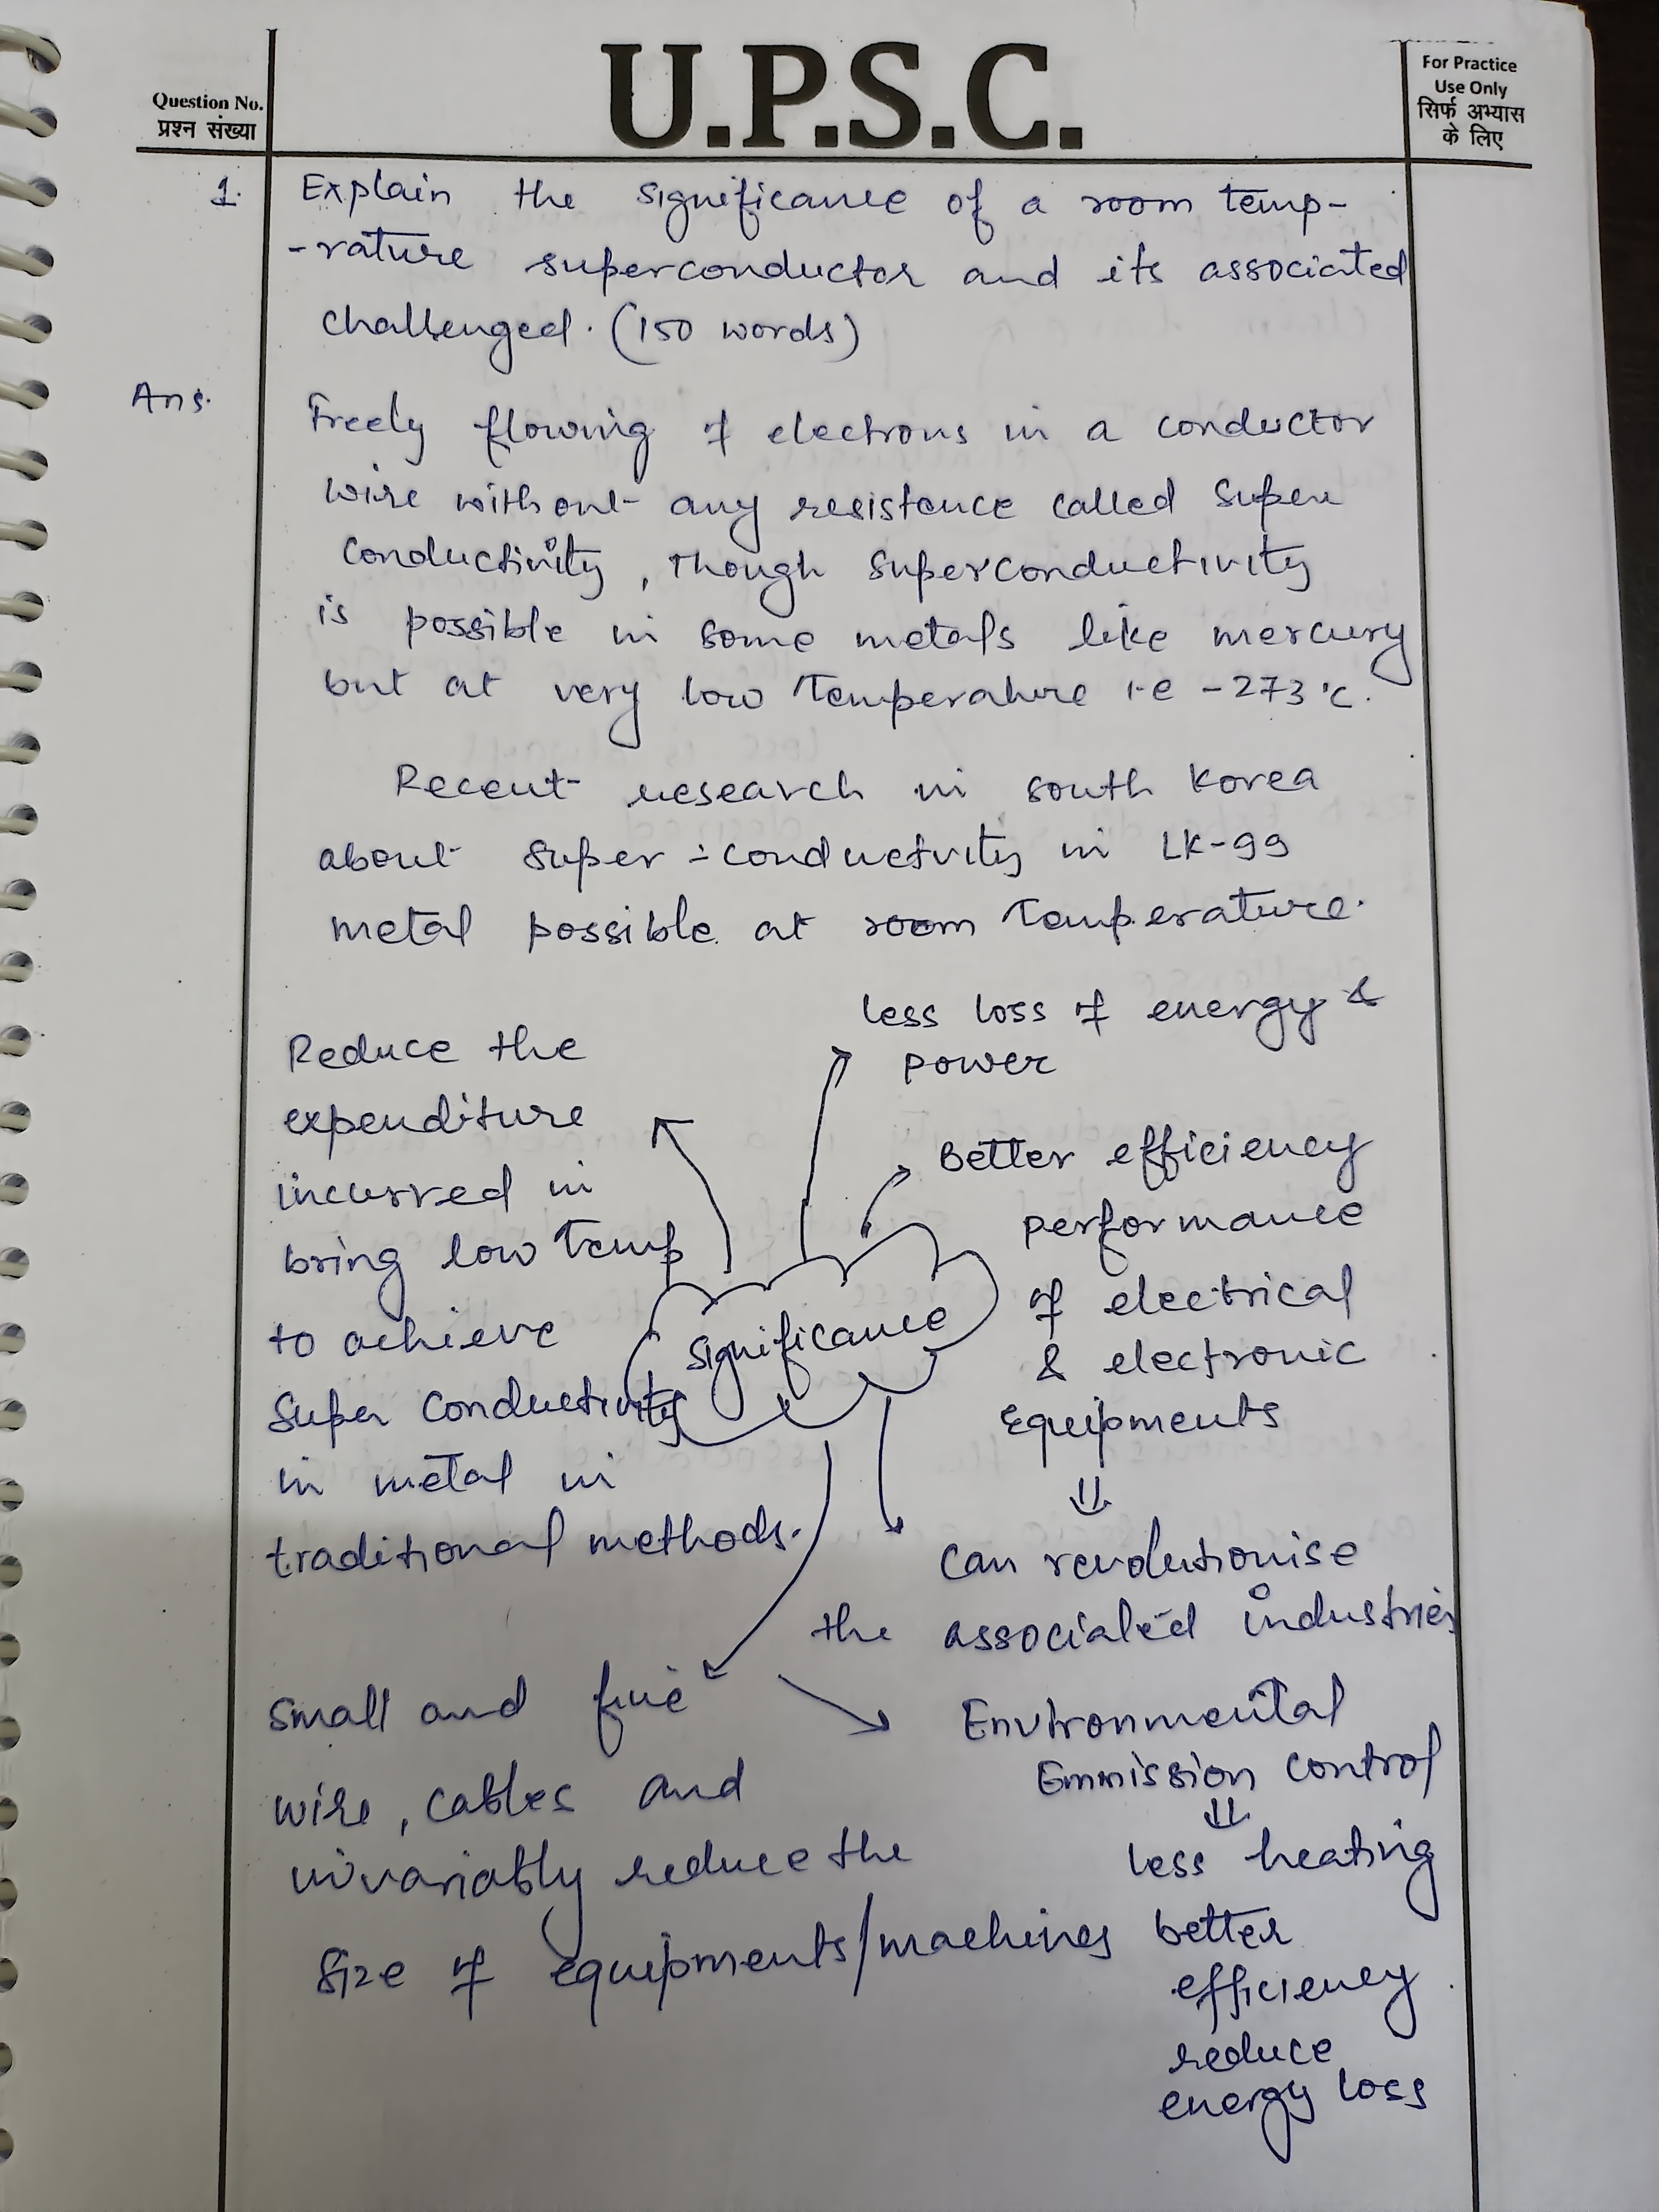 U.P.S.C.
Question No.
प्रश्न संख्या
For Practice
Use Only
सिर्फ अभ्यास
के लिए
1. Explain the significance of a room temp-
-rature superconductor and its associated
challenged. (150 words)
Ans. Freely flowing of electrons in a conductor
wire without any resistance called super
conductivity, Though superconductivity
is possible in some metals like mercury
but at very low Temperature i.e -273°C.
Recent research in south Korea
about super-conductvity in LK-99
metal possible at room Temperature.
less loss of energy &
power
Reduce the
expenditure
incurred in
bring low Temp
to achieve
Super Conductivity
in metal in
traditional methods.
Better efficiency
performance
of electrical
& electronic
Equipments
⇓
Significance
can revolutionise
the associated industries
Small and fine
wire, cables and
invariably reduce the
Size of equipments/machines
Environmental
Emmission control
⇓
less heating
better
efficiency
reduce
energy loss